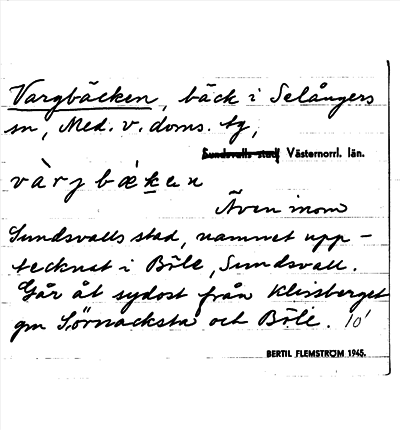 Vargbäcken, bäck i Selångers
sn, Med. v. doms. tg,
Sundsvalls stad, Västernorrl. län.
vàrjbæken
Även inom
Sundsvalls stad, namnet upp-
tecknat i Böle, Sundsvall.
Går åt sydost från Klissberget
gm Sörnacksta och Böle. 10'
BERTIL FLEMSTRÖM 1945.